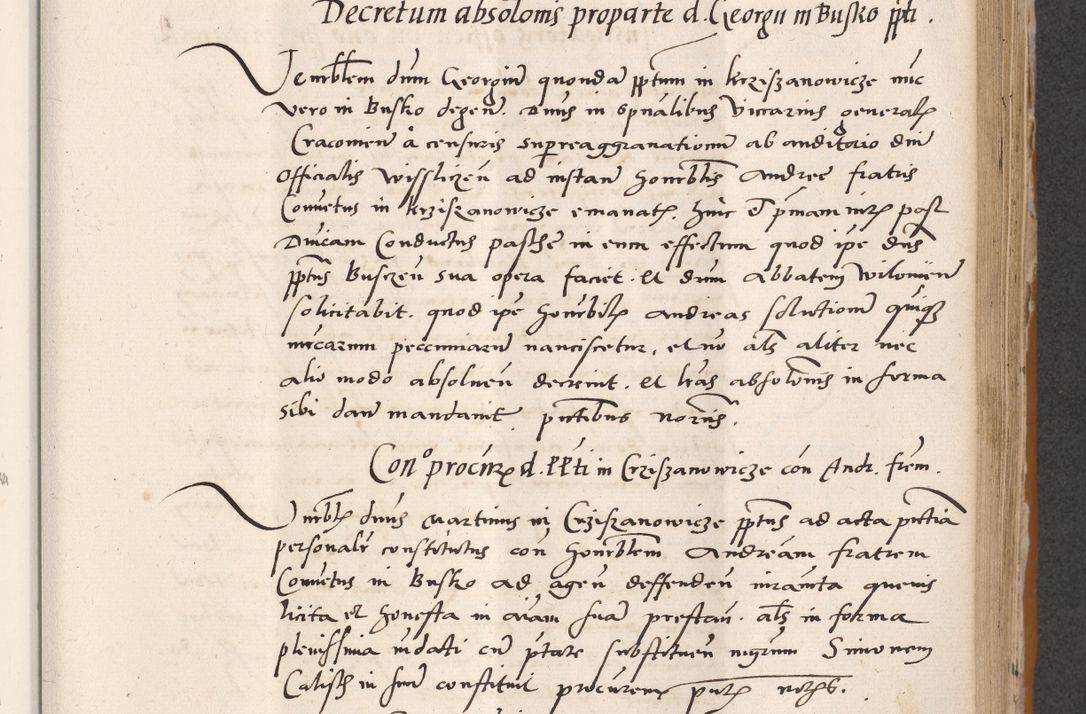 Decretum absolonis pro parte d. Georgii in Busko ppti.
Venerbilem dnm Georgium quondam pptum in Krziszanowicze nuc
vero in Busko degen. Dnus in spualibus Viccarius general
Cracovien a censuris supreaggravationum ab auditorio dni
officialis Wissliczen ad instan honorblis Andree fratris
Conuetus in Krziszanowicze emanat. hinc et pmam mrt post
Duicam Conductus pasche in eum effectum quod ipe dns
pptus Busczen sua opera faciet. et dnm abbatem Wilowien
solicitabit. quod ipe honorbilis Andreas solutionem
mrcarum pecuniarum nanciscetur, et no als aliter nec
alio modo absoluen decreuit. et lras absolonis in forma
sibi dare mandauit. pntibus notriis.
Con° procur d. ppti in Crziszanowicze con Andr. frem.
Venrblis dnus Martinus in Crziszanowicze pptus ad acta pntia
personalr constitutus con honorblem Andream fratrem
Conuetus in Busko ad agen deffenden queuis
licita et honesta in aiam suam prestan. als in forma
plenissima mdati cu ptate substituen mgrum Simonem
Calisch in suum constituit procurem pntz noths.